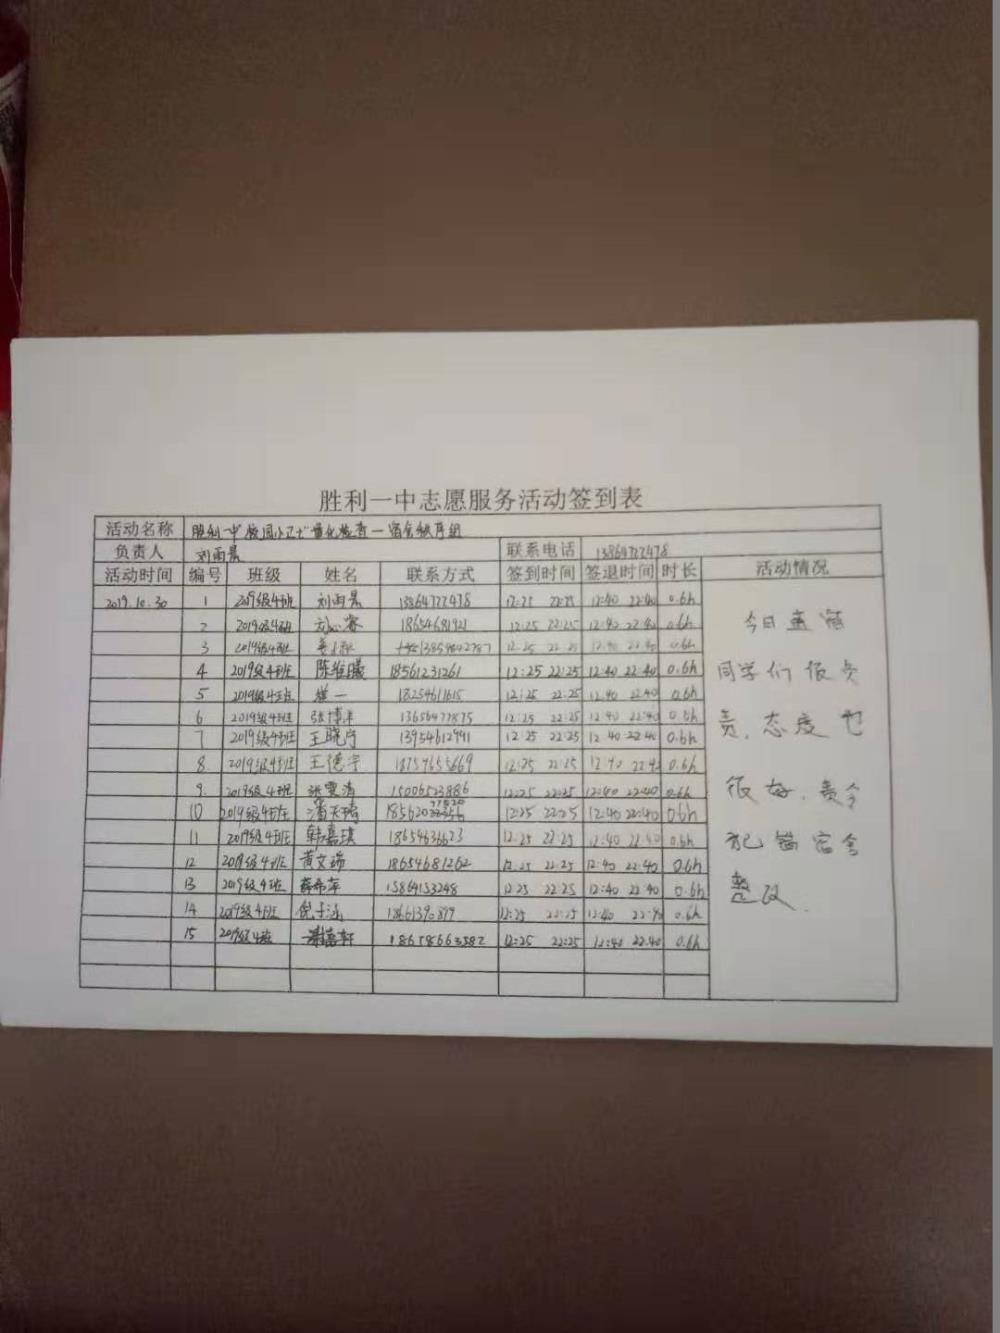 胜利一中志愿服务活动签到表
活动名称 胜利一中校园小卫士量化检查一宿舍秩序组
负责人 刘雨景 联系电话 13864777478
活动时间 编号 班级 姓名 联系方式 签到时间 签退时间 时长 活动情况
2019.10.30 1 2019级4班 刘雨景 13864777478 12:25 22:25 12:40 22:40 0.6h
2 2019级4班 18654681921 12:25 22:25 12:40 22:40 0.6h
3 2019级4班 12:25 22:25 12:40 22:40 0.6h
4 2019级4班 陈维曦 18561231261 12:25 22:25 12:40 22:40 0.6h
5 2019级4班 18254611615 12:25 22:25 12:40 22:40 0.6h
6 2019级4班 张博 13656477875 12:25 22:25 12:40 22:40 0.6h
7 2019级4班 王晓宁 13954612991 12:25 22:25 12:40 22:40 0.6h
8 2019级4班 王德宇 18754655669 12:25 22:25 12:40 22:40 0.6h
9 2019级4班 张雯清 15006523886 12:25 22:25 12:40 22:40 0.6h
10 2019级4班 潘天琦 12:25 22:25 12:40 22:40 0.6h
11 2019级4班 韩嘉琪 18654636623 12:25 22:25 12:40 22:40 0.6h
12 2019级4班 黄文瑞 18654681262 12:25 22:25 12:40 22:40 0.6h
13 2019级4班 薛希萍 15864153248 12:25 22:25 12:40 22:40 0.6h
14 2019级4班 倪子涵 18661390899 12:25 22:25 12:40 22:40 0.6h
15 2019级4班 18678663582 12:25 22:25 12:40 22:40 0.6h
今日查宿
同学们很负
责,态度也
很好,责令
犯错宿舍
整改